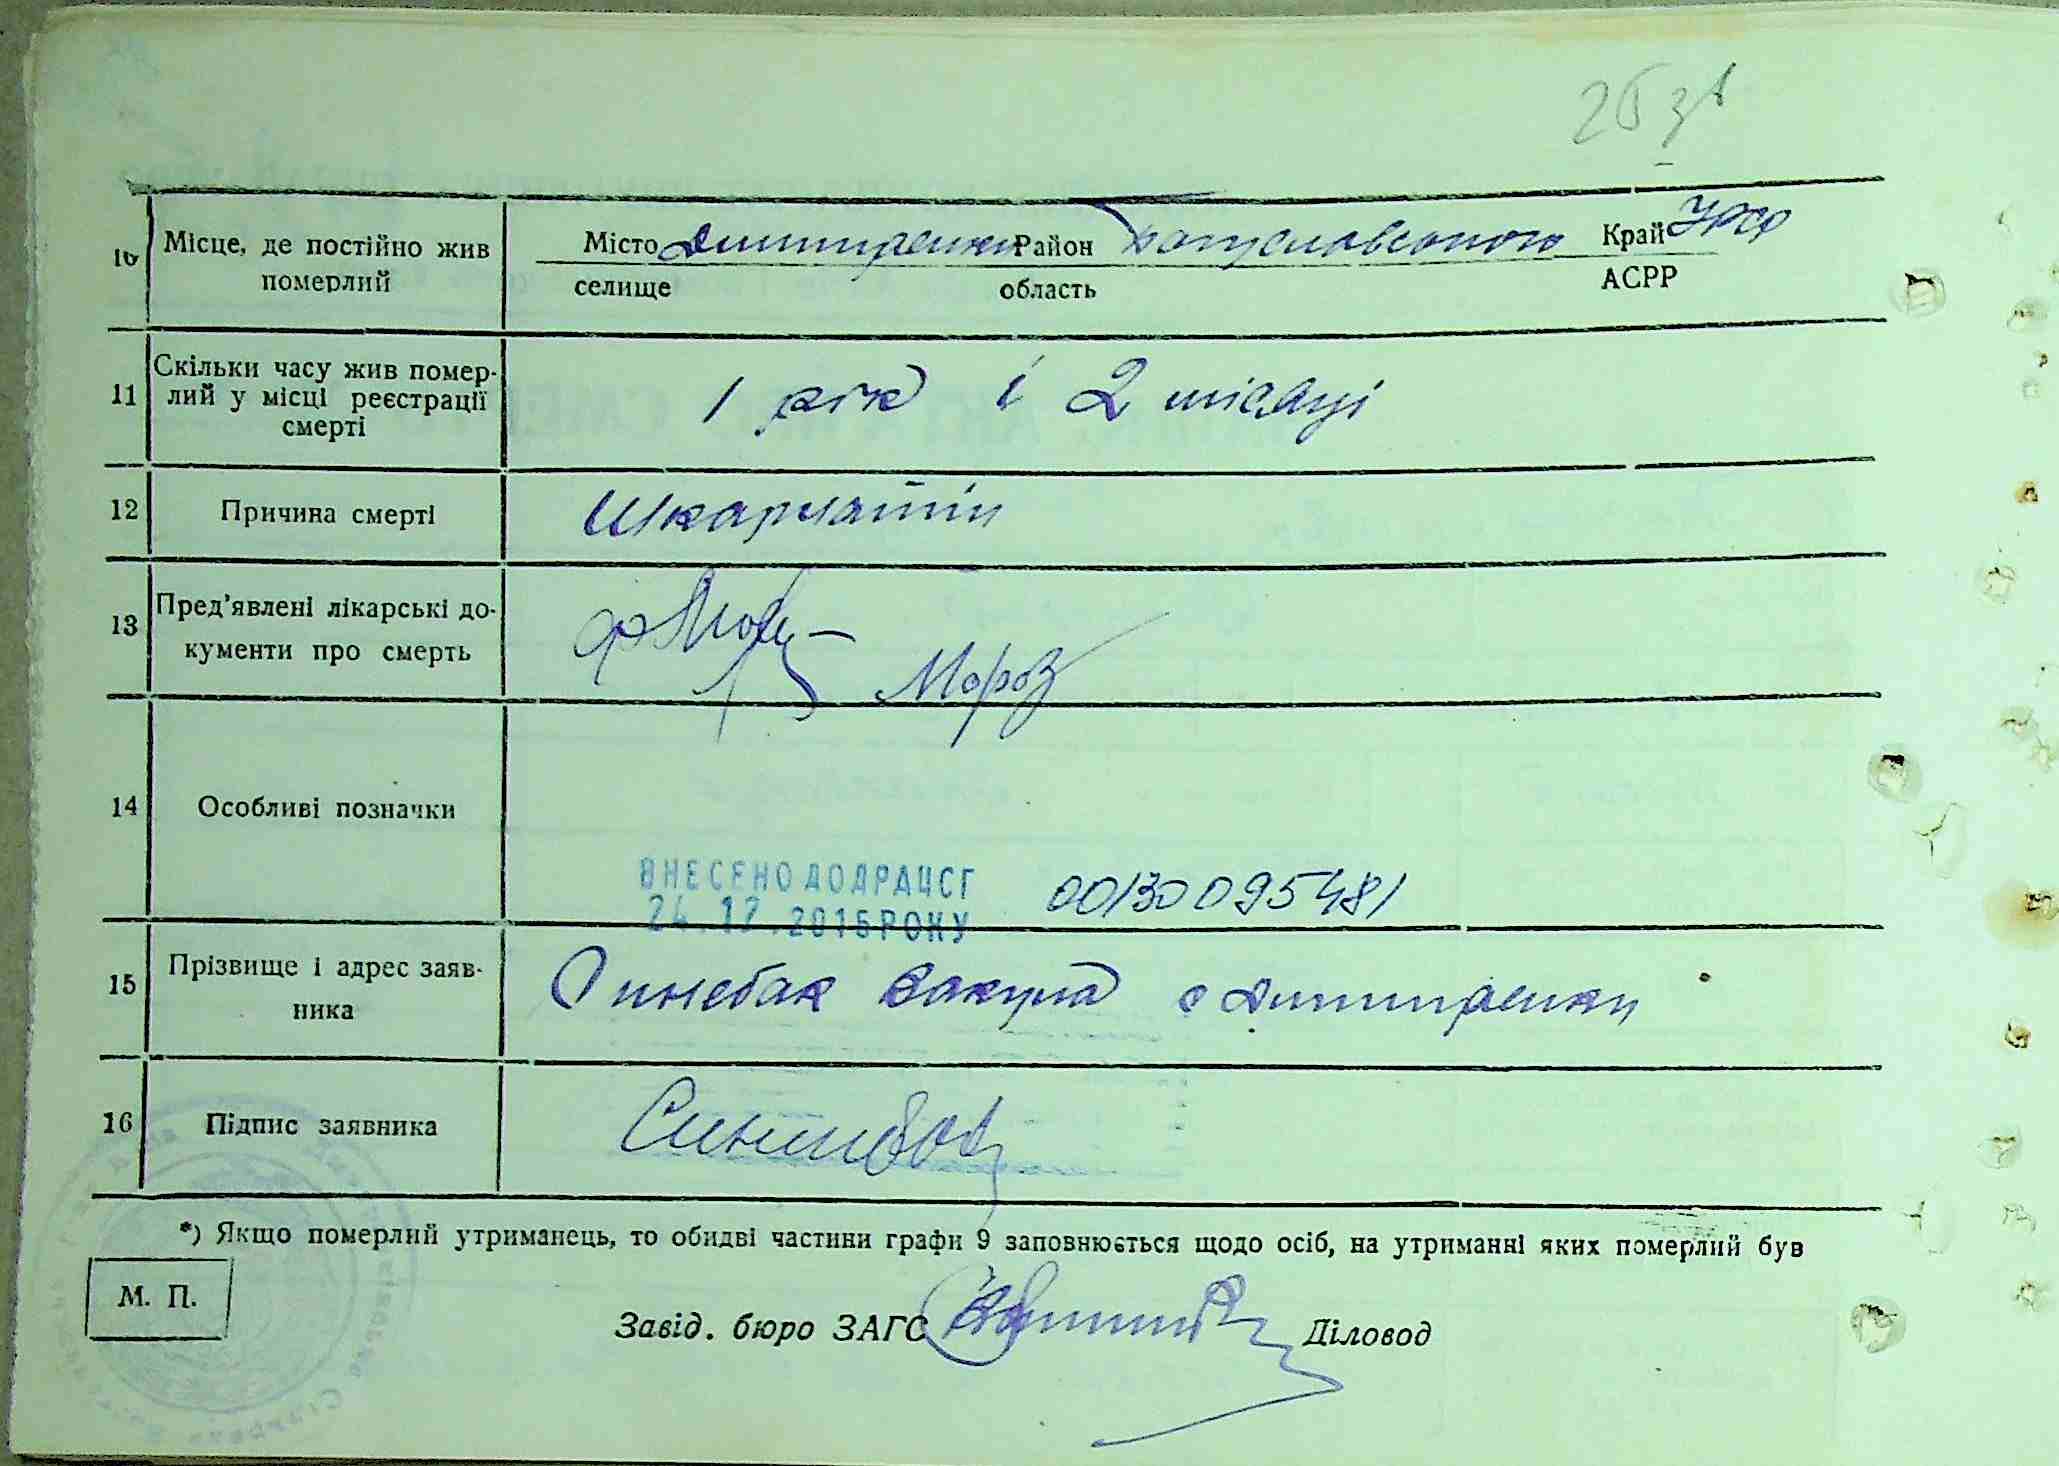 10 Місце, де постійно жив померлий
Місто Дмитренки Район Богуславського Край УРСР
селище область АСРР
11 Скільки часу жив помер-
лий у місці реєстрації
смерті
1 рік і 2 місяці
12 Причина смерті Шкарлатін
13 Пред'явлені лікарські до-
кументи про смерть
Мороз
14 Особливі позначки
ВНЕСЕНО ДО ДРАЦСГ 00130095481
24.12.2015 РОКУ
15 Прізвище і адрес заяв-
ника
Синебак Вакула с Дмитренки
16 Підпис заявника
*) Якщо померлий утриманець, то обидві частини графи 9 заповнюється щодо осіб, на утриманні яких померлий був
М. П.
Завід. бюро ЗАГС Діловод